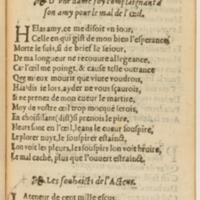 D'vne dame soy complaignant à
son amy pour le mal de l'œil.
HElas amy, ce me disoit vn iour,
Celle en qui gist de mon bien l'esperance,
Morte ie suis, si de brief le seiour,
De ma longueur ne recouure allegeance,
Car l'œil me poingt, & cause telle outrance
Que mieux mourir que viure voudrois,
Ha dis ie lors, ayder ne vous sçaurois,
Si ne prenez de mon cœur le martire,
Moy de vostre œil trop mocqué serois,
En choisissant
Pleurs sont en l'œil, & en le cœur souspire,
Le plorer nuyt, le souspirer estainct,
Lon voit les pleurs, les souspirs lon voit bruire,
Le mal caché, plus que l'ouuert estrainct.
Les souhaicts de l'Acteur.
IAteneur de cent mille escus